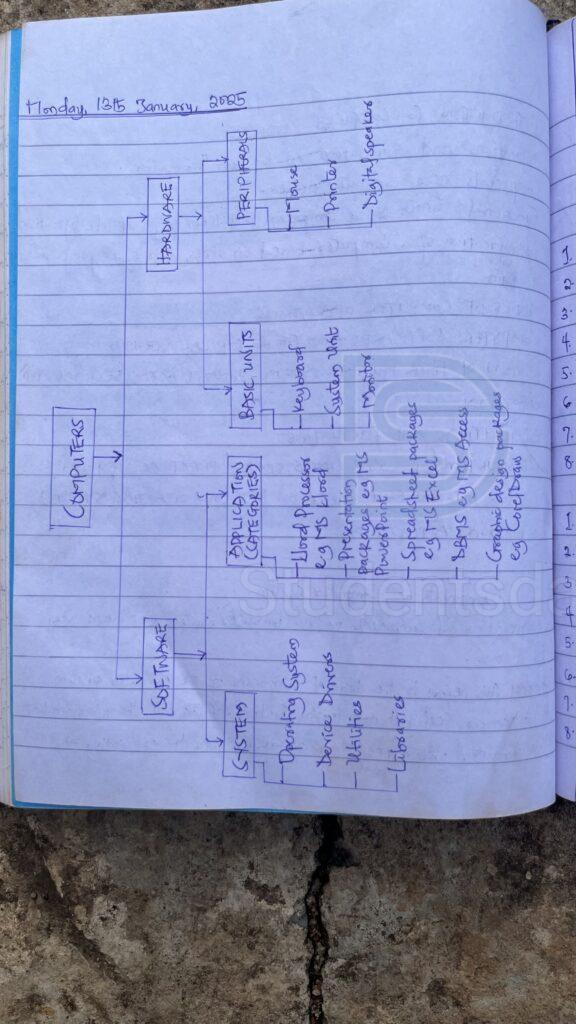 Monday, 13th January, 2025
COMPUTERS
SOFTWARE
HARDWARE
SYSTEM
Operating System
Device Drivers
Utilities
Libraries
APPLICATION
(CATEGORIES)
Word Processor
e.g MS Word
Presentation
packages e.g MS
PowerPoint
Spreadsheet packages
e.g MS Excel
DBMS e.g MS Access
Graphic design packages
e.g CorelDraw
BASIC UNITS
Keyboard
System Unit
Monitor
PERIPHERALS
Mouse
Printer
Digital Speakers
1
2
3.
4.
5.
6
7.
8.
1
2
3
4
5.
6.
7.
8.